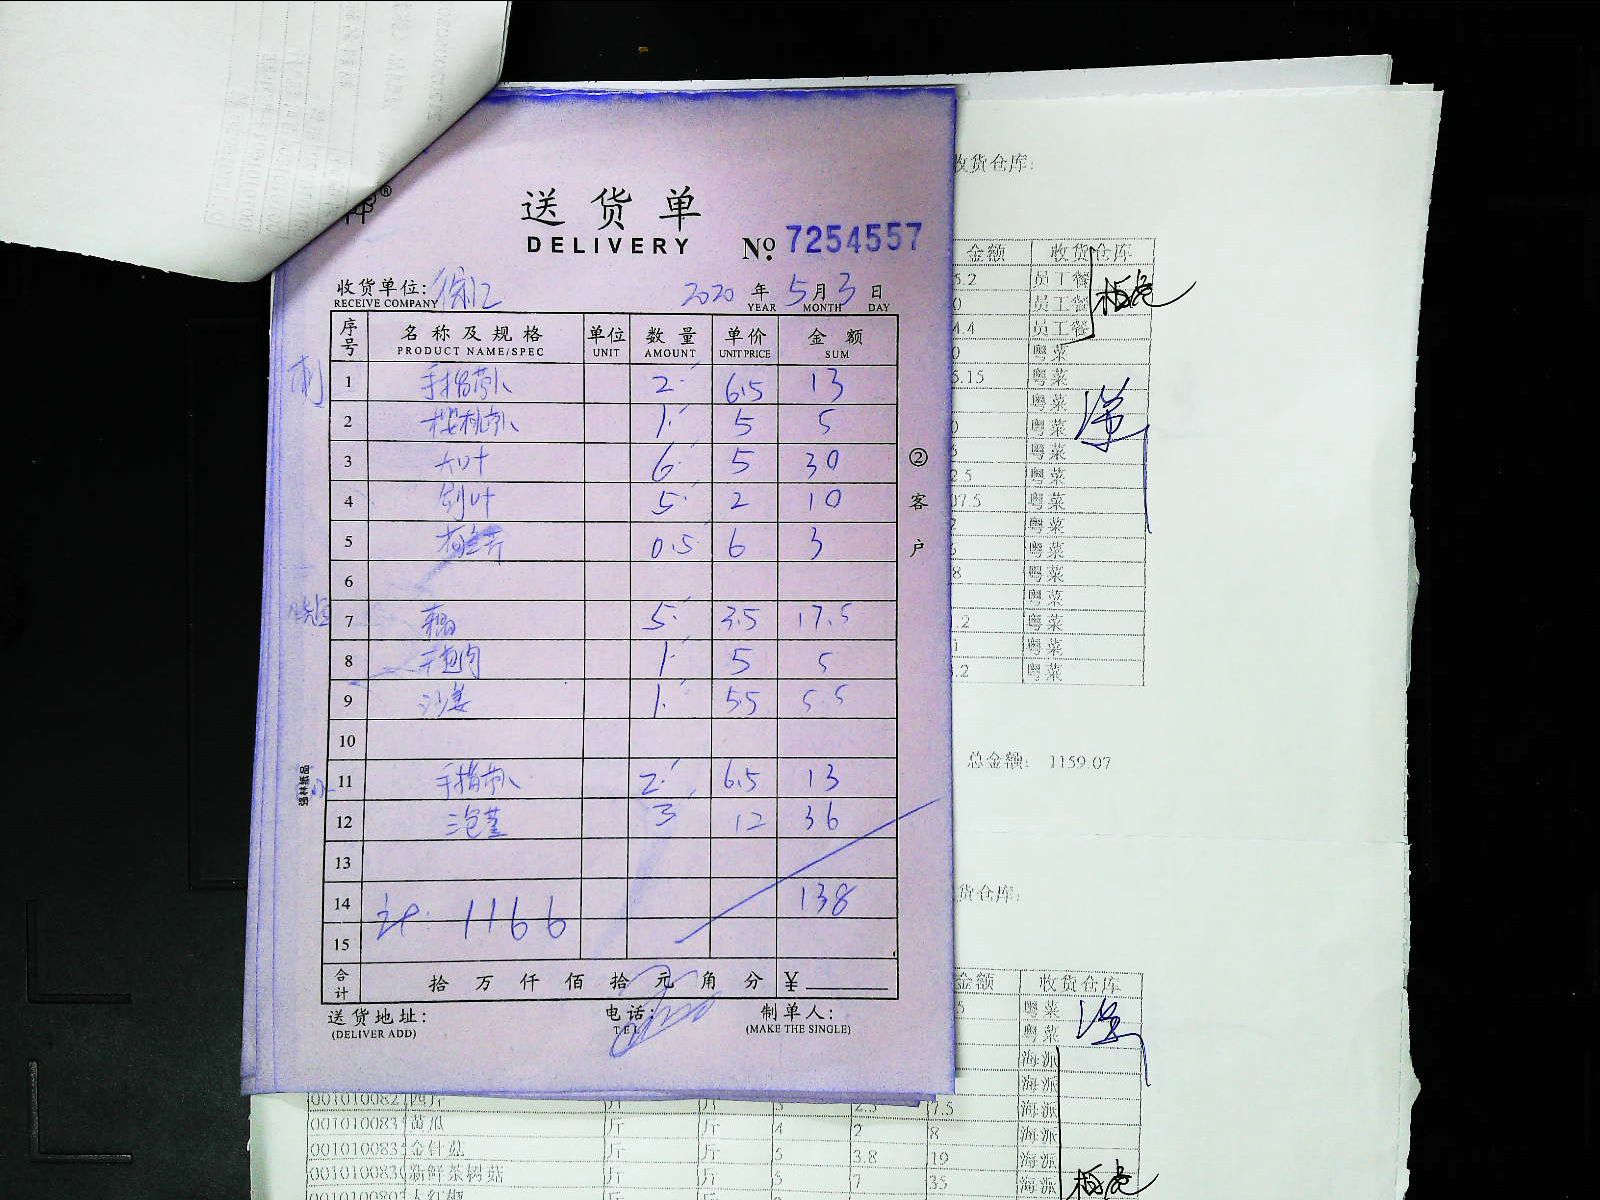 送货单
DELIVERY
№ 7254557
收货单位: 徐汇 2020 年 5 月 3 日
RECEIVE COMPANY YEAR MONTH DAY
序号 名称及规格 单位 数量 单价 金额
PRODUCT NAME/SPEC UNIT AMOUNT UNIT PRICE SUM
刺
1 手指萝卜 2 6.5 13
2 樱桃萝卜 1 5 5
3 大叶 6 5 30
4 剑叶 5 2 10
5 0.5 6 3
6
7 藕 5 3.5 17.5
8 1 5 5
9 沙姜 1 5.5 5.5
10
11 手指萝卜 2 6.5 13
12 3 12 36
13
14 计 1166 138
15
合计 拾 万 仟 佰 拾 元 角 分 ¥
送货地址: 电话: 制单人:
(DELIVER ADD) TEL (MAKE THE SINGLE)
②客户
强林纸品
收货仓库:
金额 收货仓库
5.2 员工餐
0 员工餐
4.4 员工餐
0 粤菜
5.15 粤菜
粤菜
0 粤菜
粤菜
2.5 粤菜
07.5 粤菜
2 粤菜
粤菜
8 粤菜
粤菜
.2 粤菜
粤菜
.2 粤菜
总金额: 1159.07
货仓库:
金额 收货仓库
5 粤菜
粤菜
海派
海派
001010082 四斤 斤 斤 3 2.5 7.5 海派
001010083 黄瓜 斤 斤 4 2 8 海派
001010083 金针菇 斤 斤 5 3.8 19 海派
00101008 新鲜茶树菇 斤 斤 5 7 35 海派